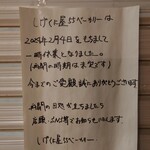 しげくに屋55ベーカリーは
2025年2月4日をもちまして
一時休業となりました。
(再開の時期は未定です)
今までのご愛顧誠にありがとうございます
再開の目処が立ちましたら
店頭、SNS等でお知らせいたします
しげくに屋55ベーカリー